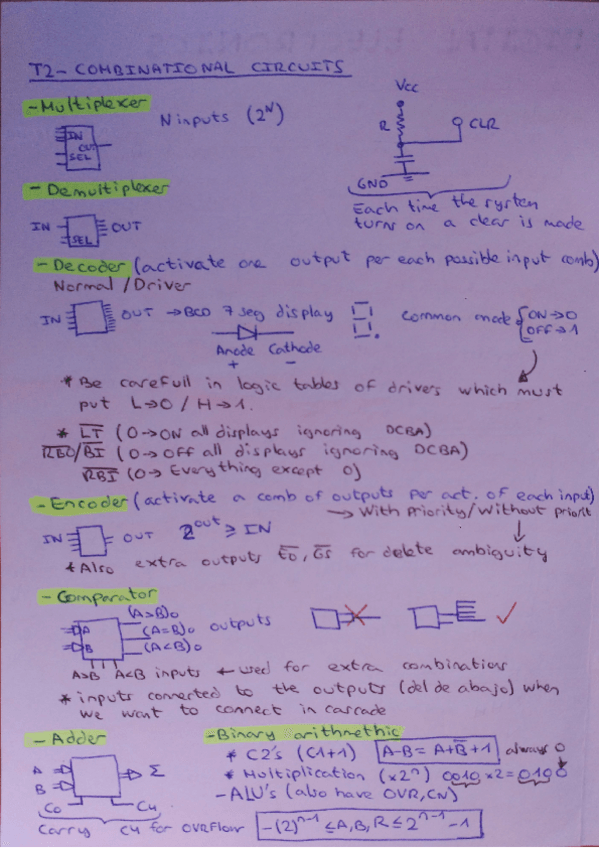 T2- COMBINATIONAL CIRCUITS
- Multiplexer
IN
OUT
SEL
N inputs (2^N)
Vcc
R
CLR
GND
Each time the system
turns on a clear is made
- Demultiplexer
IN
OUT
SEL
- Decoder (activate one output per each possible input comb)
Normal / Driver
IN
OUT → BCD 7 seg display
Anode Cathode
+ -
Common mode { ON → 0
OFF → 1
* Be carefull in logic tables of drivers which must
put L → 0 / H → 1.
* L̅T̅ (0 → ON all displays ignoring DCBA)
R̅B̅O̅/B̅I̅ (0 → OFF all displays ignoring DCBA)
R̅B̅I̅ (0 → Everything except 0)
- Encoder (activate a comb of outputs per act. of each input)
→ With Priority/Without priorit
IN
OUT
2^OUT ≥ IN
* Also extra outputs E̅O̅, G̅S̅ for delete ambiguity
- Comparator
A
B
(A>B)o
(A=B)o
(A<B)o
outputs
A>B A<B inputs ← used for extra combinations
* inputs connected to the outputs (del de abajo) when
we want to connect in cascade
- Adder
A
B
Σ
Co C4
Carry C4 for overflow
- Binary arithmethic
* C2's (C1+1) A-B = A+B̅+1 always 0
* Multiplication (x2^n) 0010 x2 = 0100
- ALU's (also have OVR, CN)
-(2)^n-1 ≤ A, B, R ≤ 2^n-1 - 1